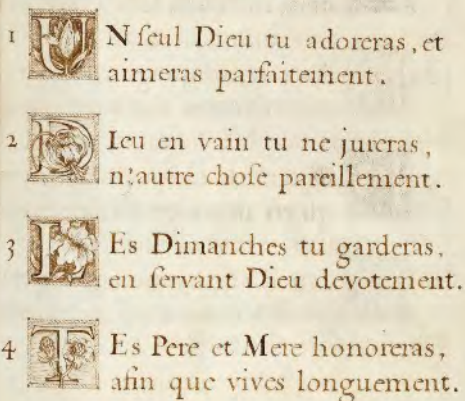 1 UN seul Dieu tu adoreras, et
aimeras parfaitement.
2 DIeu en vain tu ne jureras,
n'autre chose pareillement.
3 LEs Dimanches tu garderas,
en servant Dieu devotement.
4 TEs Pere et Mere honoreras,
afin que vives longuement.